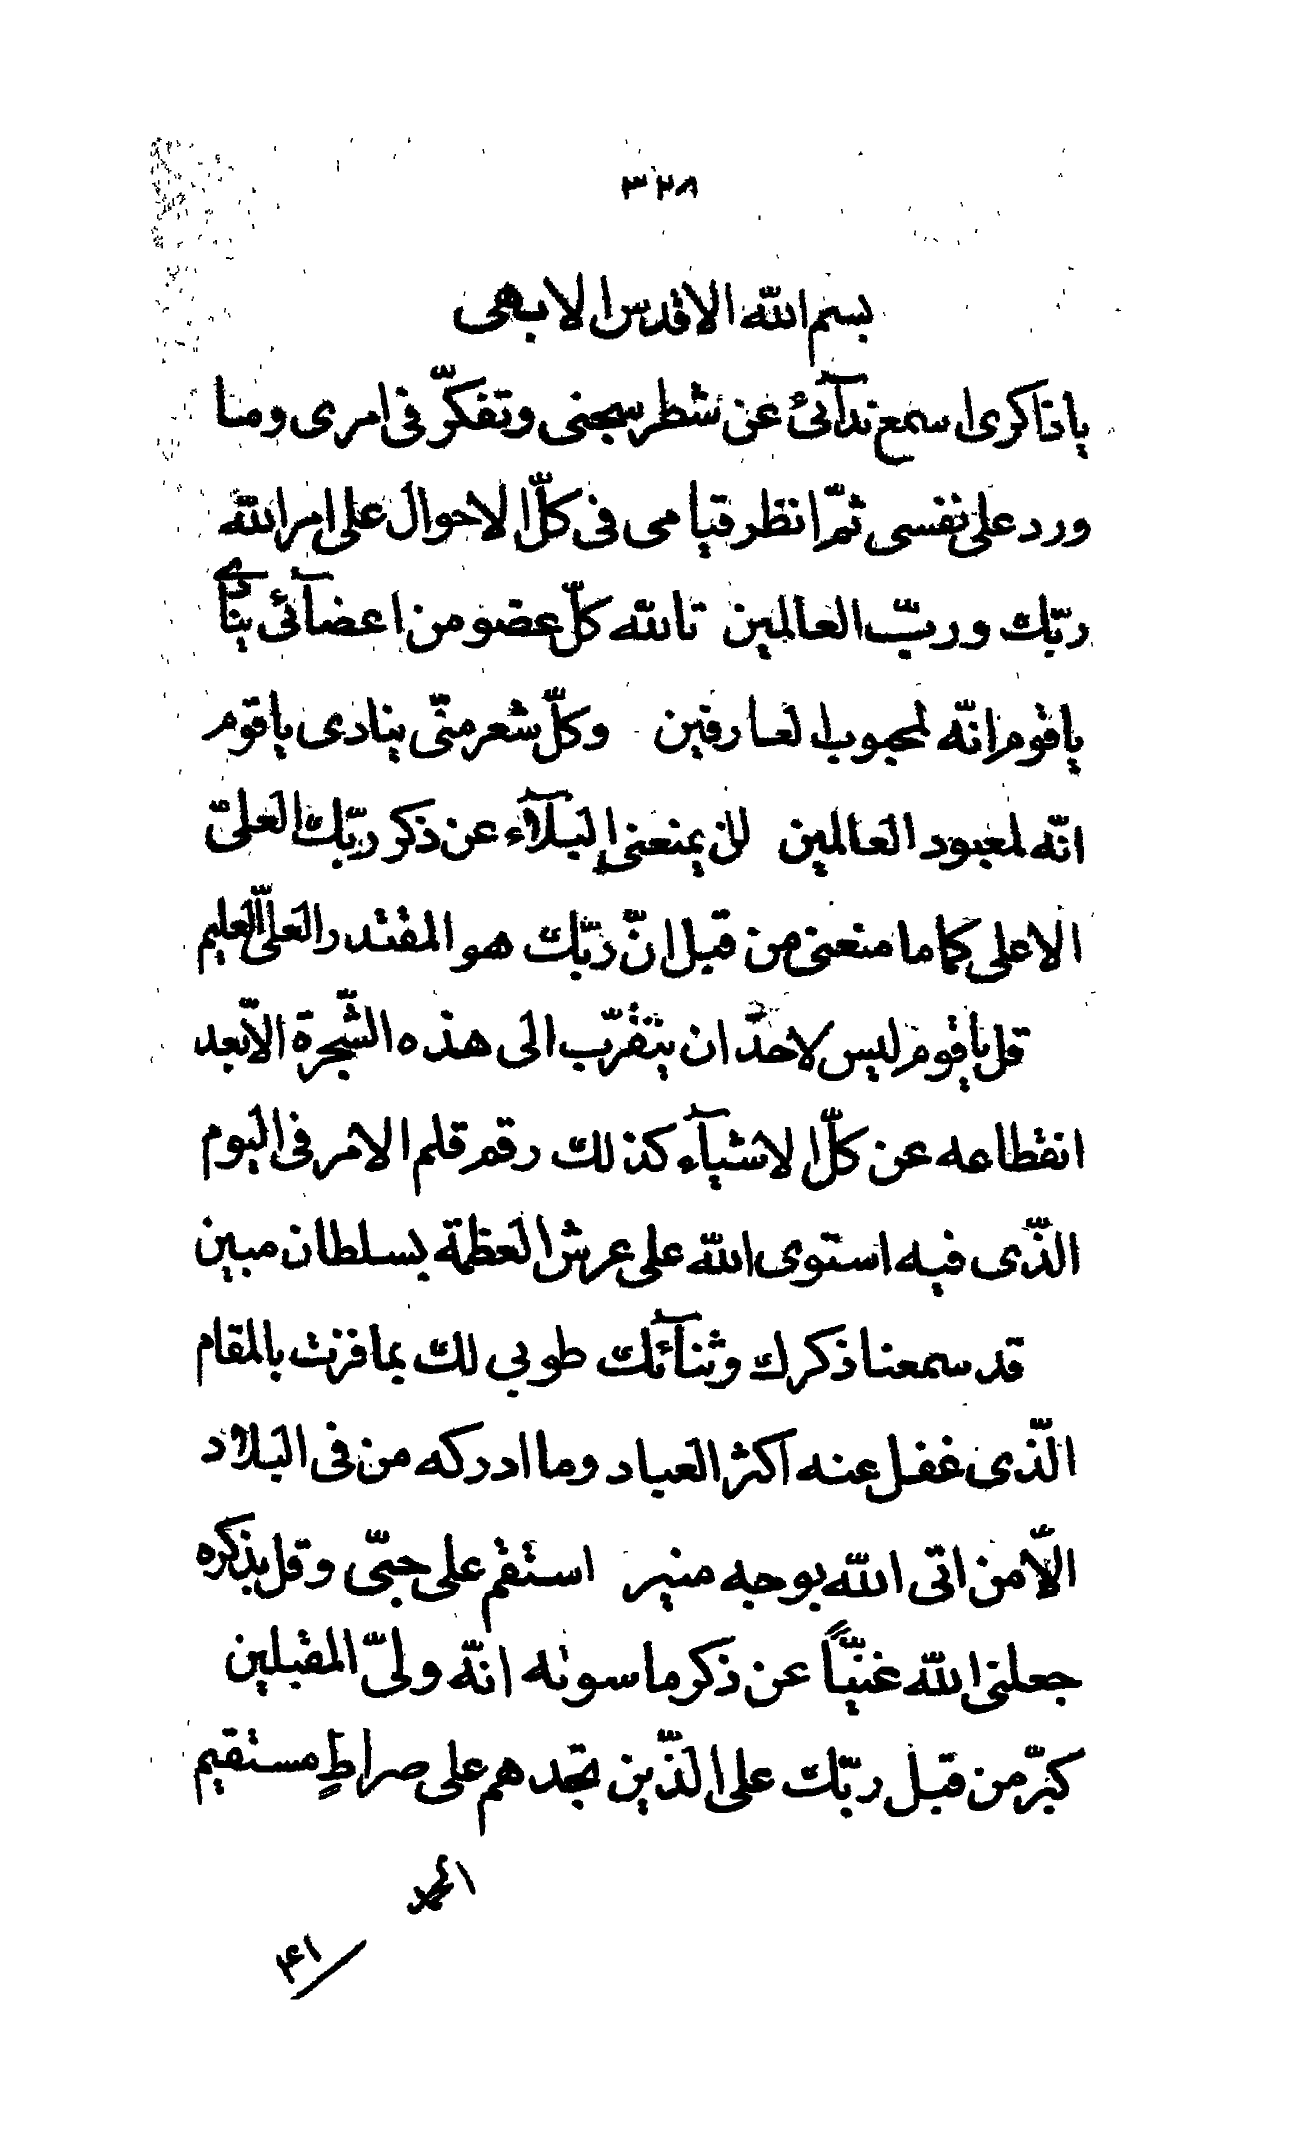 ٣٢٨
بسم الله الاقدس الابهى
يا ذاكرى اسمع ندآئى عن شطر سجنى وتفكّر فى امرى وما
ورد على نفسى ثمّ انظر قيامى فى كلّ الاحوال على امر الله
ربّك وربّ العالمين تالله كلّ عضو من اعضآئى ينادى
يا قوم انّه لمحبوب العارفين وكلّ شعر منّى ينادى يا قوم
انّه لمعبود العالمين لن يمنعنى البلآء عن ذكر ربّك العلىّ
الاعلى كما ما منعنى من قبل انّ ربّك هو المقتدر العلىّ العليم
قل يا قوم ليس لاحد ان يتقرّب الى هذه الشّجرة الّا بعد
انقطاعه عن كلّ الاشيآء كذلك رقم قلم الامر فى اليوم
الّذى فيه استوى الله على عرش العظمة بسلطان مبين
قد سمعنا ذكرك وثنآئك طوبى لك بما فزت بالمقام
الّذى غفل عنه اكثر العباد وما ادركه من فى البلاد
الّا من اتى الله بوجه منير استقم على حبّى وقل بذكره
جعلنى الله غنيّاً عن ذكر ما سوئه انّه ولىّ المقبلين
كبّر من قبل ربّك على الّذين تجدهم على صراطٍ مستقيم
الحمد
٤١